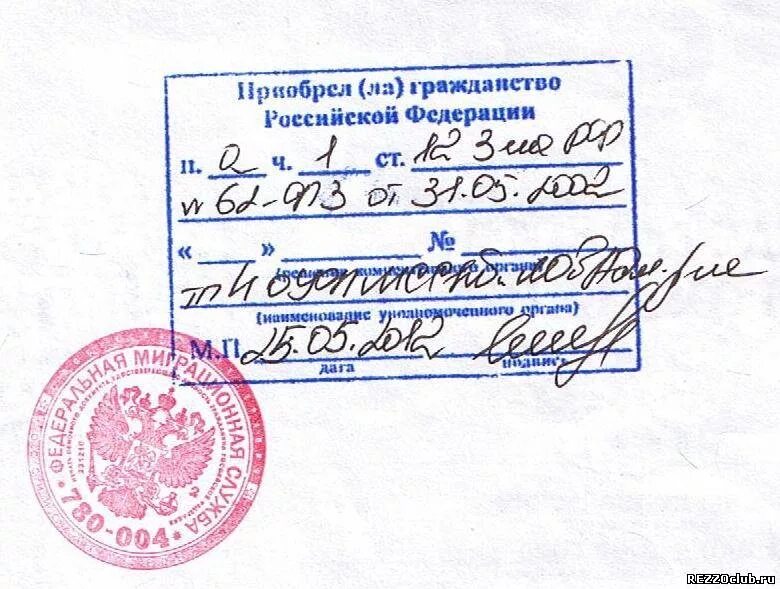 Приобрел (ла) гражданство
Российской Федерации
п. а ч. 1 ст. 12 З-на РФ
N 62-ФЗ от 31.05.2002
« » №
(решение компетентного органа)
(наименование уполномоченного органа)
М.П. 25.05.2012
дата подпись
ФЕДЕРАЛЬНАЯ МИГРАЦИОННАЯ СЛУЖБА
* 780-004 *
REZZOclub.ru